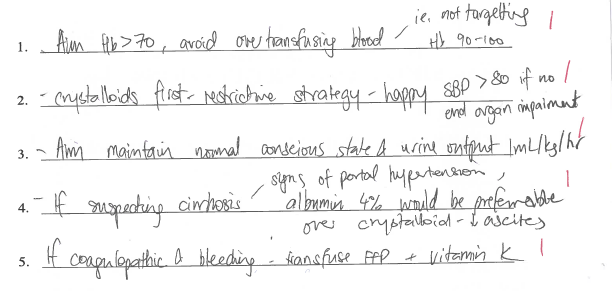 1. Aim Hb>70, avoid overtransfusing blood / ie. not targetting
Hb 90-100
2. - crystalloids first - restrictive strategy - happy SBP >80 if no
end organ impairment
3. - Aim maintain normal conscious state & urine output 1mL/kg/hr
4. - If suspecting cirrhosis / signs of portal hypertension,
albumin 4% would be preferrable
over crystalloid - ↓ ascites
5. If coagulopathic & bleeding - transfuse FFP + vitamin K